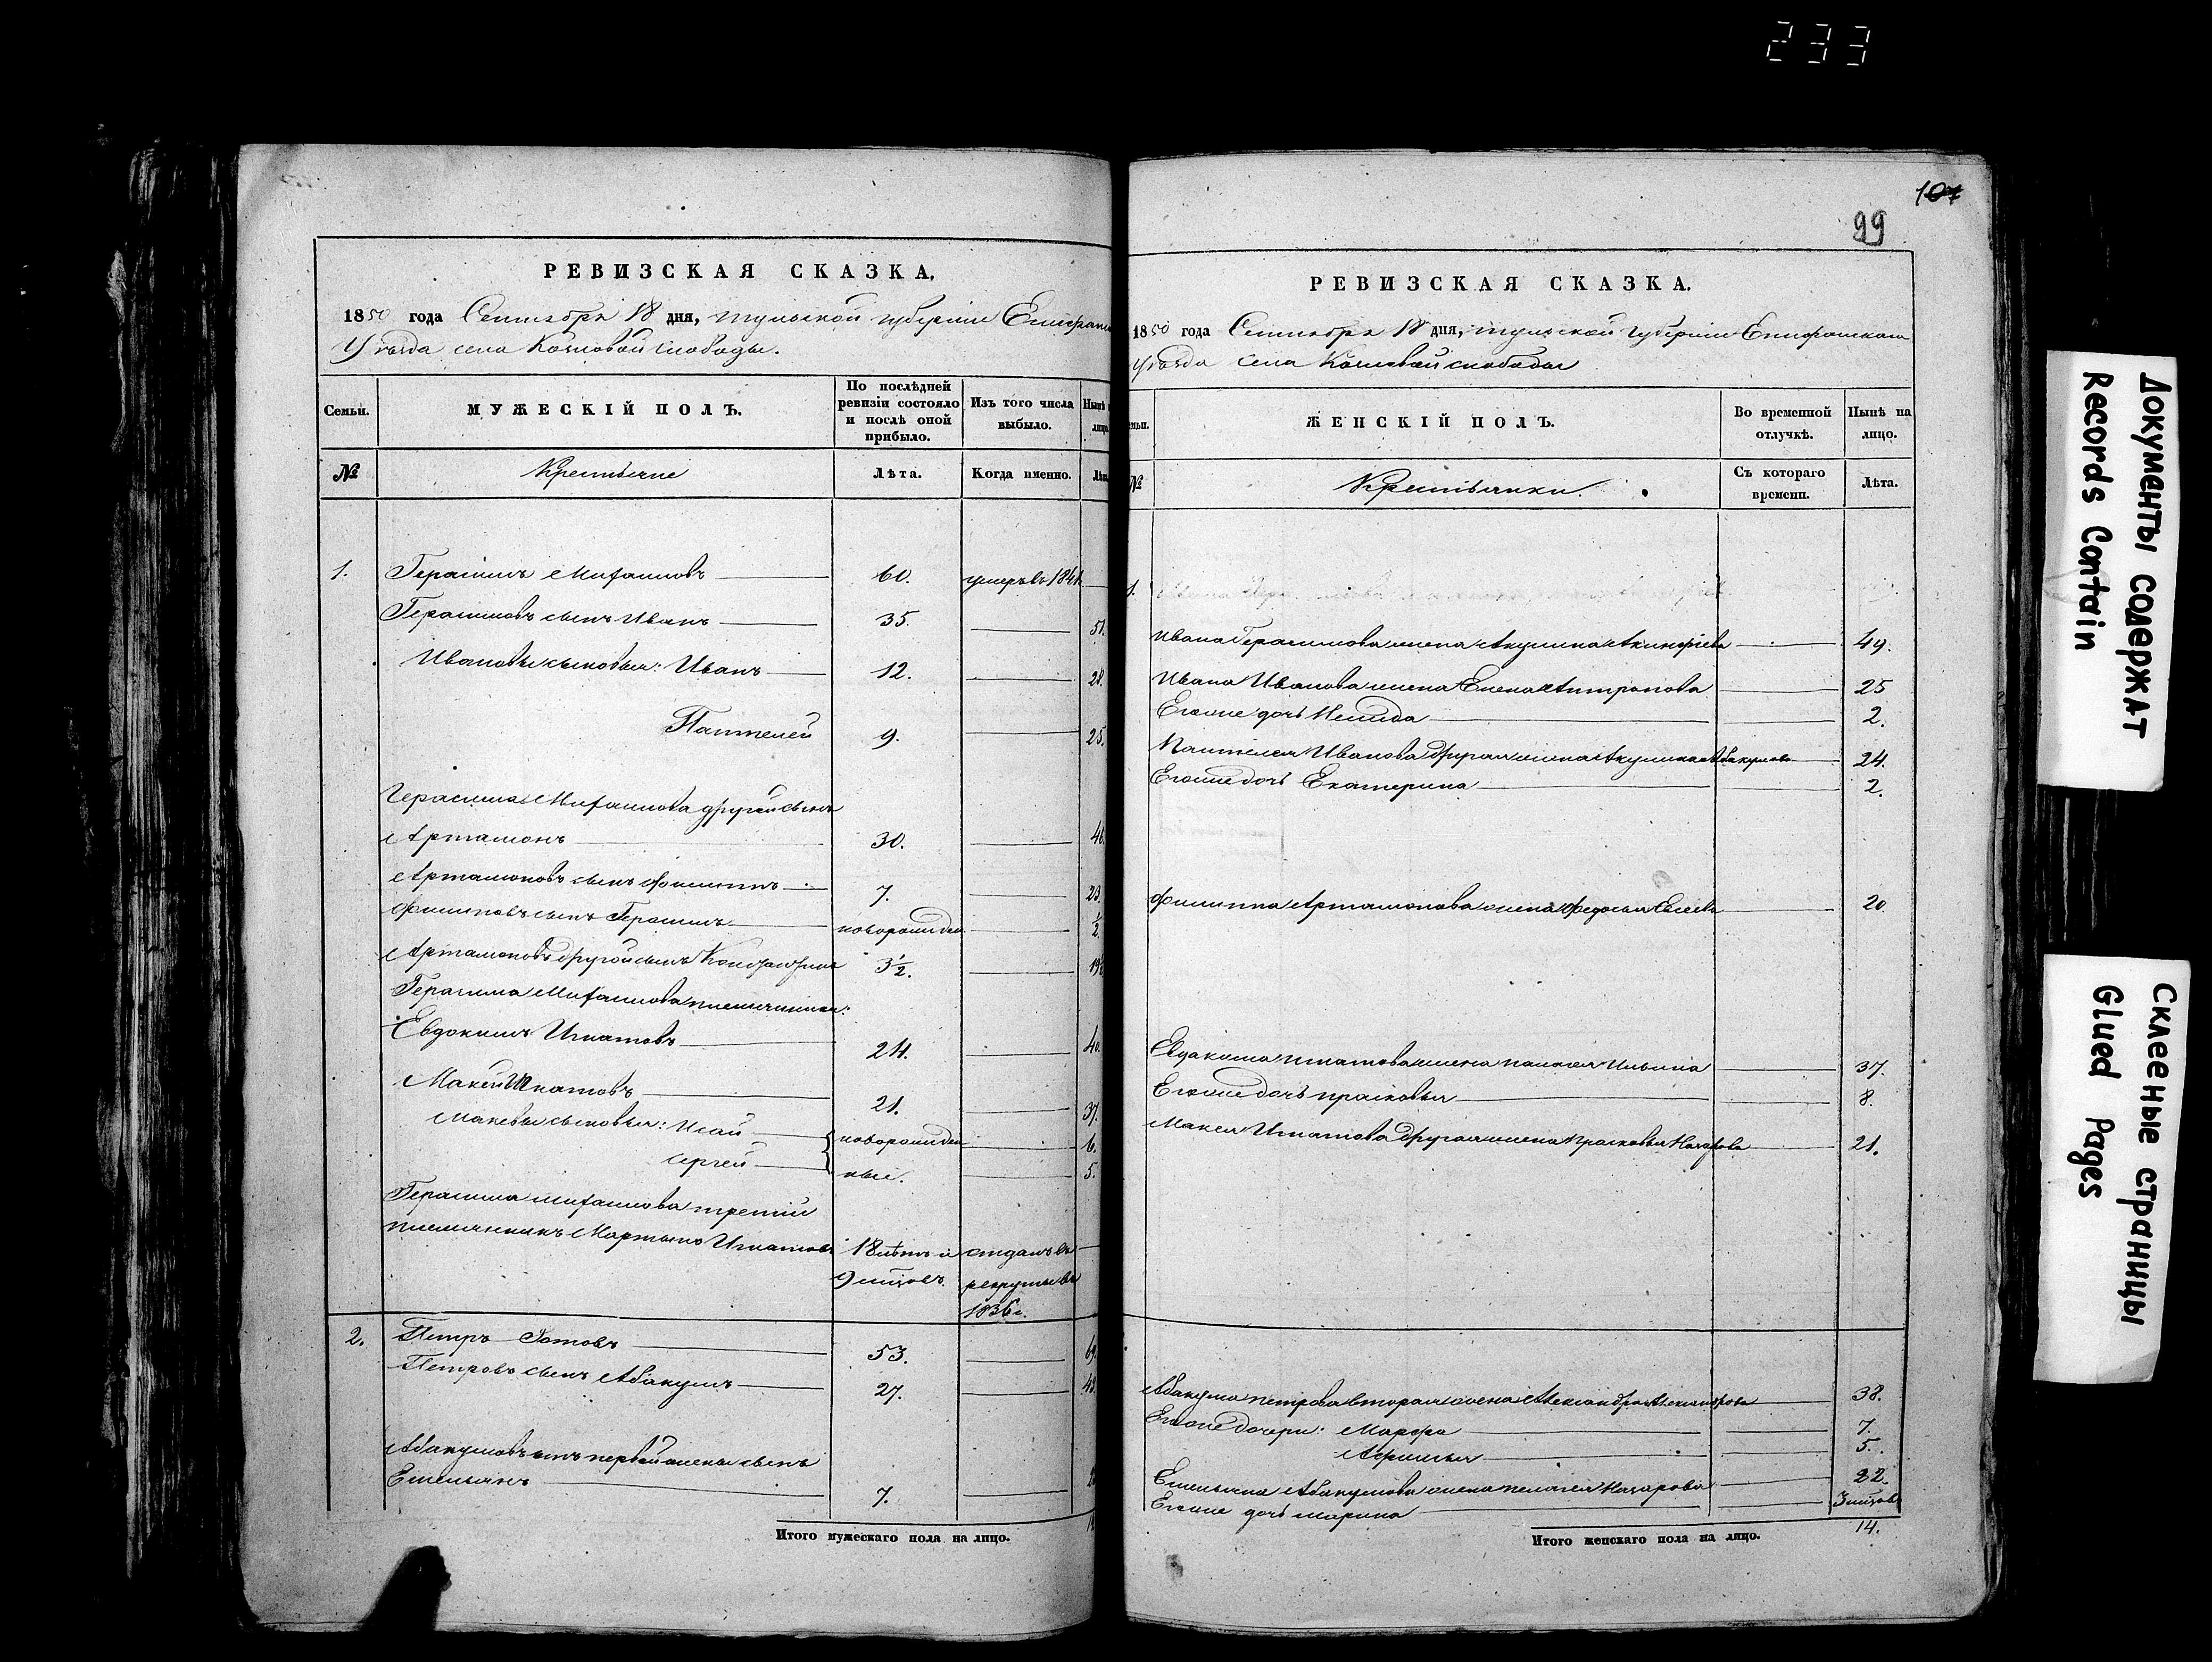 233
107
99
РЕВИЗСКАЯ СКАЗКА.
1850 года Сентября 18 дня, тульской губернiи Епифанс
Уѣзда села Козловой слободы.
Семьи.
МУЖЕСКIЙ ПОЛЪ.
По послѣдней ревизiи состояло и послѣ оной прибыло.
Изъ того числа выбыло.
Нынѣ на лицо.
№
Крестьяне
Лѣта.
Когда именно.
Лѣта
1. Герасимъ Михайловъ 60. умеръ въ 1841
Герасимовъ сынъ Иванъ 35. 51.
Ивановы сыновья: Иванъ 12. 28.
Пантелей 9. 25.
Герасима Михайлова другой сынъ
Артамонъ 30. 46.
Артамоновъ сынъ Филиппъ 7. 23.
Филиповъ сынъ Герасимъ новорожден. 1/2.
Артамоновъ другой сынъ 3 1/2. 19
Герасима Михайлова племянники:
Евдокимъ Игнатовъ 24. 40.
Макей Игнатовъ 21. 37.
Макевы сыновья: Исай новорожден 6.
Сергей ные. 5.
Герасима Михайлова третiй
племянникъ Мартынъ Игнатовъ 18 лѣтъ и отданъ въ
9 мѣцовъ. рекруты въ
1836 г.
2. Петръ 53. 69.
Петровъ сынъ Абакумъ 27. 43.
Абакумовъ отъ первой жены сынъ
Емельянъ 7.
Итого мужескаго пола на лицо.
РЕВИЗСКАЯ СКАЗКА.
1850 года Сентября 18 дня, тульской губернiи Епифанскаго
уѣзда села Козловой слободы
мьи.
ЖЕНСКIЙ ПОЛЪ.
Во временной отлучкѣ.
Нынѣ на лицо.
№
Крестьянки.
Съ котораго времени.
Лѣта.
1.
Ивана Герасимова жена Акулина Акинфiева 49.
Ивана Иванова жена Елена Антропова 25
Егоже дочь 2.
Пантелея Иванова другая жена Акулина Абакумова 24.
Егоже дочь Екатерина 2.
Филиппа Артамонова жена Федосья Евсеева 20.
Евдокима Игнатова жена Палагея Ильина 37.
Егоже дочь Прасковья 8.
Макея Игнатова другая жена Прасковья Назарова 21.
Абакума Петрова вторая жена Александра Александрова 38.
Егоже дочери: Марфа 7.
Афимья 5.
Емельяна Абакумова жена Пелагея Назарова 22.
Егоже дочь Марина 3 мѣцов
Итого женскаго пола на лицо. 14.
Документы содержат
Records Contain
Склееные страницы
Glued Pages